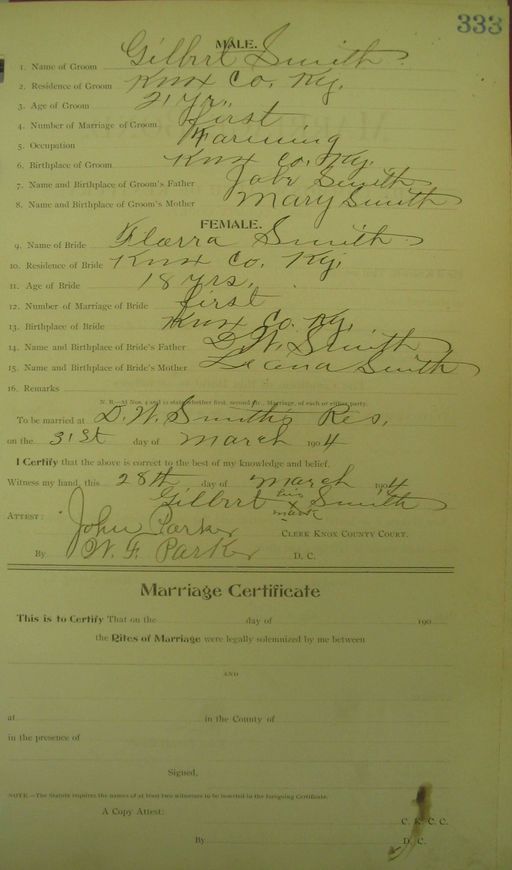 333
MALE.
1. Name of Groom Gilbert Smith
2. Residence of Groom Knox Co. Ky.
3. Age of Groom 21 yrs.
4. Number of Marriage of Groom first
5. Occupation Farming
6. Birthplace of Groom Knox Co. Ky.
7. Name and Birthplace of Groom's Father Smith
8. Name and Birthplace of Groom's Mother Mary Smith
FEMALE.
9. Name of Bride Smith
10. Residence of Bride Knox Co. Ky.
11. Age of Bride 18 yrs.
12. Number of Marriage of Bride first
13. Birthplace of Bride Knox Co. Ky.
14. Name and Birthplace of Bride's Father D. W. Smith
15. Name and Birthplace of Bride's Mother Smith
16. Remarks
N. B.—At Nos. 4 and 12 state whether first, second, etc., Marriage, of each or either party.
To be married at D. W. Smith's Res.
on the 31st day of March 1904
I Certify that the above is correct to the best of my knowledge and belief.
Witness my hand, this 28th day of March 1904
Gilbert his x mark Smith
ATTEST: John Parker CLERK KNOX COUNTY COURT.
By W. F. Parker D. C.
Marriage Certificate
This is to Certify That on the day of 190
the Rites of Marriage were legally solemnized by me between
AND
at in the County of
in the presence of
Signed,
NOTE.—The Statute requires the names of at least two witnesses to be inserted in the foregoing Certificate.
A Copy Attest:
C. K. C. C.
By D. C.